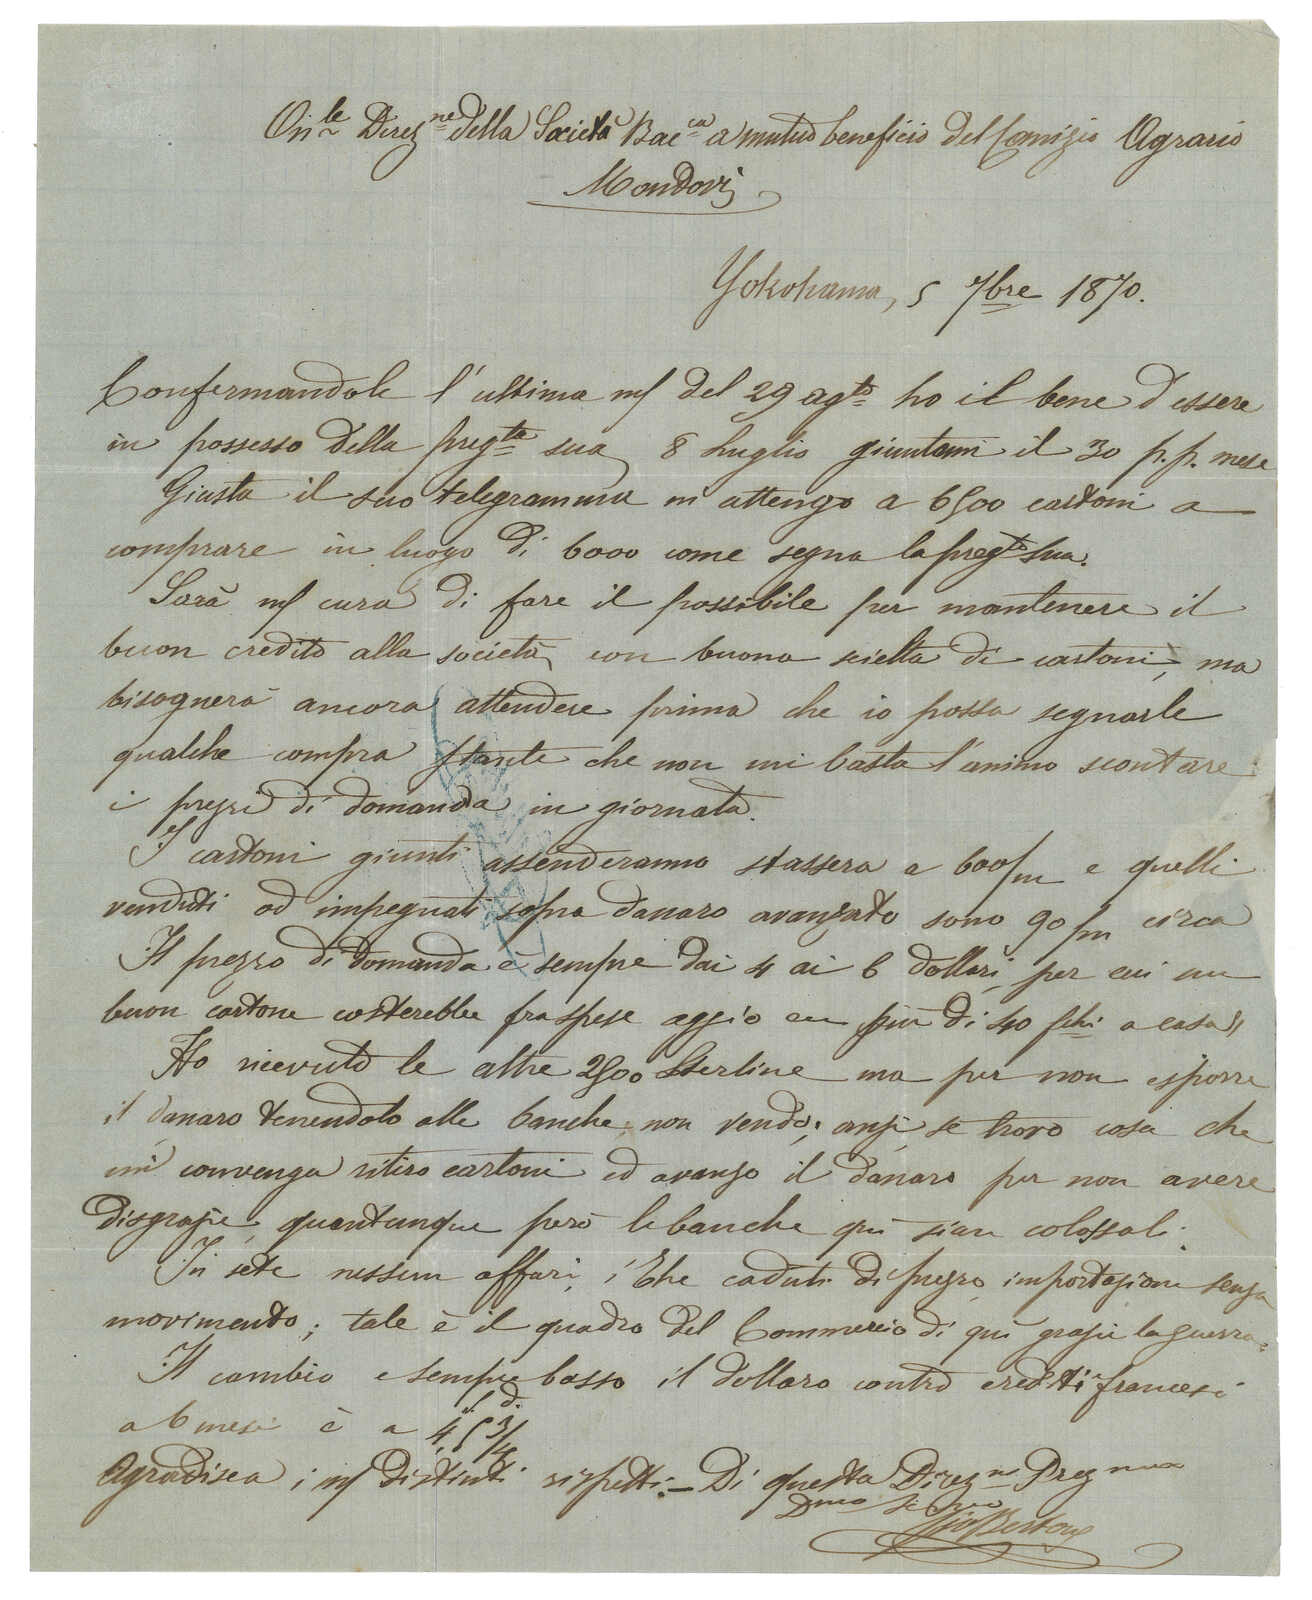 On.le Direz.ne della Società Bac.ca a mutuo beneficio del Comizio Agrario
Mondovì
Yokohama, 5 7bre 1870.
Confermandole l'ultima mf del 29 agto ho il bene d'essere
in possesso della preg.ta sua 8 Luglio giuntami il 30 p.p. mese
Giusta il suo telegramma m'attengo a 6500 cartoni a
comprare in luogo di 6000 come segna la preg.ta sua.
Sarà mf cura di fare il possibile per mantenere il
buon credito alla società, con buona scielta di cartoni, ma
bisognerà ancora attendere prima che io possa segnarle
qualche compra stante che non mi basta l'animo scontare
i prezzi di domanda in giornata.
I cartoni giunti assenderanno stassera a 600/m e quelli
venduti od impegnati sopra danaro avanzato sono 90/m circa
Il prezzo di domanda è sempre dai 4 ai 6 dollari, per cui un
buon cartone costerebbe fra spese aggio più di 40 fchi a casa
Ho ricevuto le altre 2500 Sterline ma per non esporre
il danaro tenendolo alle banche non vendo; anzi se trovo cosa che
mi convenga ritiro cartoni ed avanzo il danaro per non avere
disgrazie, quantunque però le banche qui sian colossali.
In sete nessun affari, i Thé caduti di prezzo, importazione senza
movimento; tale è il quadro del Commercio di qui grazie la guerra.
Il cambio è sempre basso il dollaro contro crediti francesi
a 6 mesi è a 4.s 5 3/4 d.
Agradisca i mf distinti rispetti. – Di questa Direz.ne Preg.ma
Dmo Servo
Gio Bertone